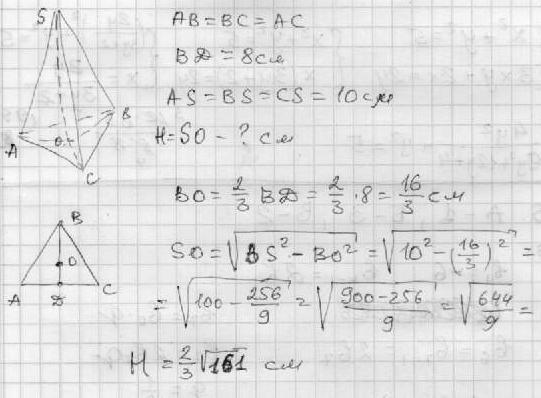 S
AB = BC = AC
BD = 8 см
AS = BS = CS = 10 см
H = SO - ? см
A
B
C
O
BO = 2/3 BD = 2/3 · 8 = 16/3 см
B
O
A
D
C
SO = √(BS² - BO²) = √(10² - (16/3)²) =
= √(100 - 256/9) = √((900-256)/9) = √(644/9) =
H = 2/3 √161 см